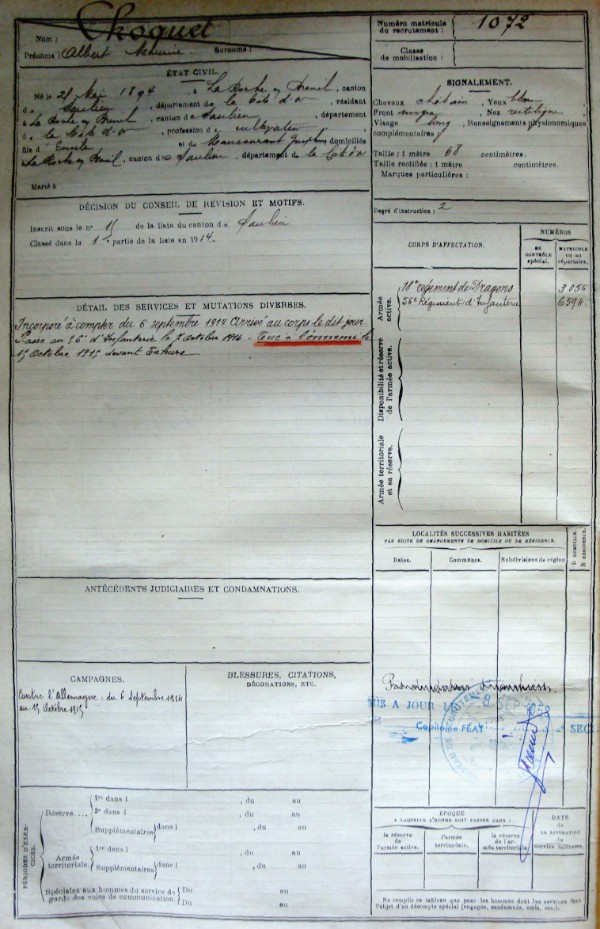 Nom : Choquet
Numéro matricule du recrutement : 1072
Prénoms : Albert Maurice Surnoms :
Classe de mobilisation :
ÉTAT CIVIL.
Né le 21 Mai 1894, à La Roche en Brenil, canton
de Saulieu, département de la Côte d'or, résidant
à La Roche en Brenil, canton de Saulieu, département
de la Côte d'or, profession de cultivateur
fils d'Emile et de domiciliés
à La Roche en Brenil, canton de Saulieu, département de la Côte d'or
Marié à
SIGNALEMENT.
Cheveux châtain Yeux bleus
Front moyen Nez rectiligne
Visage long Renseignements physionomiques
complémentaires :
Taille : 1 mètre 68 centimètres.
Taille rectifiée : 1 mètre centimètres.
Marques particulières :
DÉCISION DU CONSEIL DE REVISION ET MOTIFS.
Inscrit sous le n° 15 de la liste du canton de Saulieu
Classé dans la 1re partie de la liste en 1914.
Degré d'instruction : 2
CORPS D'AFFECTATION.
NUMÉROS
AU CONTRÔLE spécial.
MATRICULE OU AU répertoire.
Armée active.
régiment de Dragons 3055
56e Régiment d'Infanterie 6594
Disponibilité et réserve de l'armée active.
Armée territoriale et sa réserve.
DÉTAIL DES SERVICES ET MUTATIONS DIVERSES.
Incorporé à compter du 6 septembre 1914 Arrivé au corps le dit jour
Passé au 56e d'Infanterie le octobre 1914 - Tué à l'ennemi le
15 Octobre 1915 devant Tahure
LOCALITÉS SUCCESSIVES HABITÉES
PAR SUITE DE CHANGEMENTS DE DOMICILE OU DE RÉSIDENCE.
Dates.
Communes.
Subdivisions de région
D DOMICILE.
R RÉSIDENCE.
ANTÉCÉDENTS JUDICIAIRES ET CONDAMNATIONS.
CAMPAGNES.
Contre l'Allemagne : du 6 Septembre 1914
au 15 Octobre 1915
BLESSURES, CITATIONS,
DÉCORATIONS, ETC.
MIS A JOUR LE
Capitaine FÉAT
PÉRIODES D'EXERCICES.
Réserve....
1re dans l , du au
2e dans l , du au
Supplémentaires dans l , du au
Armée territoriale.
1re dans l , du au
Supplémentaires dans l , du au
Spéciales aux hommes du service de garde des voies de communication. Du au
Du au
ÉPOQUE
A LAQUELLE L'HOMME DOIT PASSER DANS :
la réserve de l'armée active.
l'armée territoriale.
la réserve de l'armée territoriale.
DATE
DE LA LIBÉRATION DU service militaire.
Ne remplir ce tableau que pour les hommes dont les services font
l'objet d'un décompte spécial (engagés, condamnés, omis, etc.).